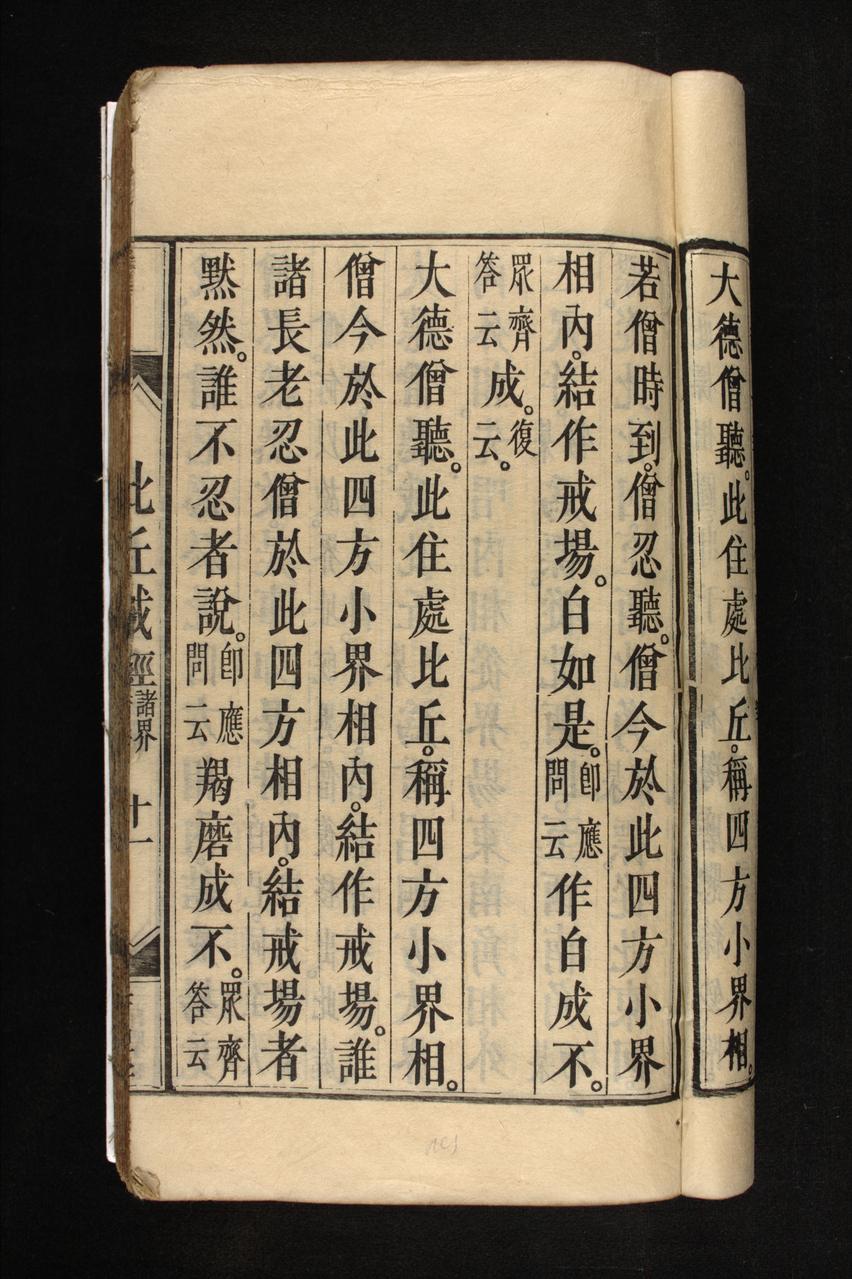 大德僧聽。此住處比丘。稱四方小界相。
若僧時到。僧忍聽。僧今於此四方小界
相內。結作戒場。白如是。卽應問云作白成不。
眾齊答云成。復云。
大德僧聽。此住處比丘。稱四方小界相。
僧今於此四方小界相內。結作戒場。誰
諸長老忍僧於此四方相內。結戒場者
默然。誰不忍者說。卽應問云羯磨成不。眾齊答云
比丘戒經 諸界 十一